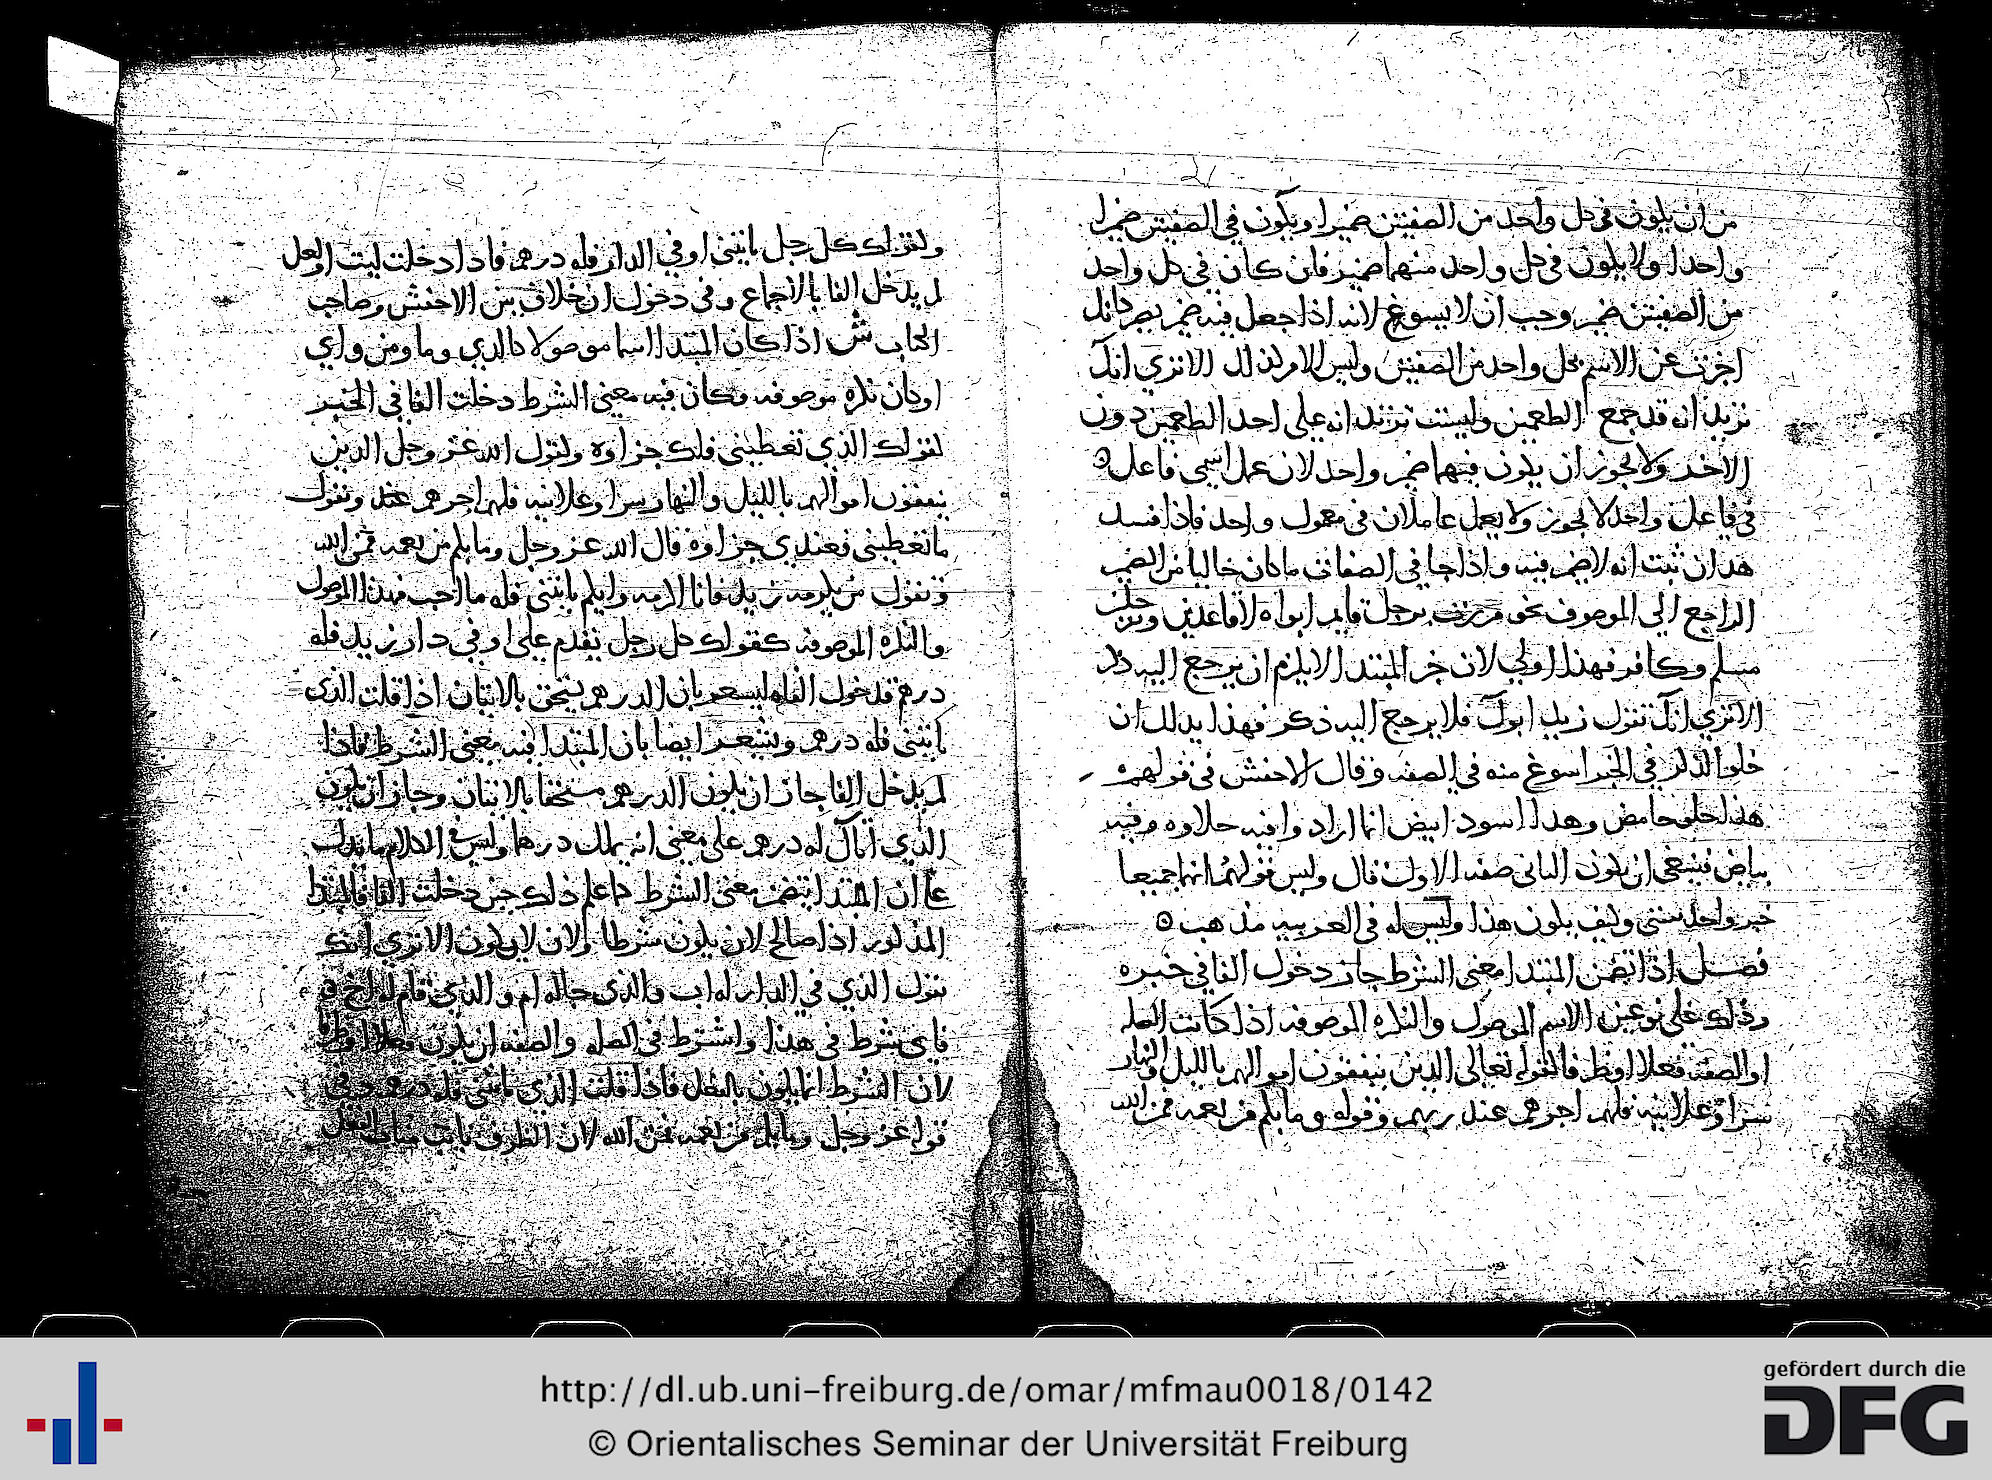 من ان يكون في كل واحد من الصفتين ضميرا ويكون في الصفتين ضميرا
واحدا ولا يكون في كل واحد منهما ضمير فان كان في كل واحد
من الصفتين ضمير وجب ان لا يسوغ لانه اذا جعل فيه ضمير يصير كانك
اخبرت عن الاسم بكل واحد من الصفتين وليس الامر كذلك الا تري انك
تريد انه قد جمع الطعمين وليست تريد انه علي احد الطعمين دون
الاخر ولا يجوز ان يكون فيهما ضمير واحد لان عمل اسمي فاعل
في فاعل واحد لا يجوز ولا يعمل عاملان في معمول واحد فاذا فسد
هذان ثبت انه لا ضمير فيه واذا جا في الصفات ما كان خاليا من الضمير
الراجع الي الموصوف نحو مررت برجل قايم ابواه لا قاعدين وبرجلين
مسلم وكافر فهذا اولي لان خبر المبتدا لا يلزم ان يرجع اليه ذكر
الا تري انك تقول زيد ابوك فلا يرجع اليه ذكر فهذا يدلك ان
خلو الذكر في الخبر اسوغ منه في الصفه وقال الاخفش في قولهم
هذا حلو حامض وهذا اسود ابيض انما اراد وا فيه حلاوه وفيه
بياض فينبغي ان يكون الثاني صفه الاول قال وليس قولهم انهما جميعا
خبر واحد بشي وكيف يكون هذا وليس له في العربيه مذهب
فصل اذا تضمن المبتدا معني الشرط جاز دخول الفا في خبره
وذلك علي نوعين الاسم الموصول والنكره الموصوفه اذا كانت الصله
او الصفه فعلا او ظرفا لقوله تعالي الذين ينفقون اموالهم بالليل والنهار
سرا وعلانيه فلهم اجرهم عند ربهم وقوله وما بكم من نعمه فمن الله
ولقولك كل رجل ياتيني او في الدار فله درهم فاذا دخلت ليت او لعل
لم يدخل الفا بالاجماع وفي دخول ان خلاف بين الاخفش وصاحب
الكتاب ش اذا كان المبتدا اسما موصولا كالذي وما ومن واي
او كان نكره موصوفه وكان فيه معني الشرط دخلت الفا في الخبر
لقولك الذي تعطيني فلك جزاوه ولقول الله عز وجل الذين
ينفقون اموالهم بالليل والنهار سرا وعلانيه فلهم اجرهم عند وتقول
ما تعطيني فعندي جزاوه قال الله عز وجل وما بكم من نعمه فمن الله
وتقول من يكرمه زيد فانا اكرمه وايكم ياتني فله ما احب فهذا الموصول
والنكره الموصوفه كقولك كل رجل يقدم علي او في دار زيد فله
درهم فدخول الفا ليشعر بان الدرهم يستحق بالاتيان اذا قلت الذي
ياتيني فله درهم ويشعر ايضا بان المبتدا فيه معني الشرط فاذا
لم يدخل الفا جاز ان يكون الدرهم مستحقا بالاتيان وجاز ان يكون
الذي اتاك له درهم علي معني انه يملك درهما وليس في الكلام ما يدل
علي ان المبتدا يتضمن معني الشرط كما علم ذلك حين دخلت الفا فالمبتدا
المذكور اذا صالح لان يكون شرطا ولان لا يكون الا تري انك
تقول الذي في الدار له اب والذي جا له ام والذي قام له اخ
فاي شرط في هذا واشترط في الصله والصفه ان يكون فعلا او ظرفا
لان الشرط انما يكون بالفعل فاذا قلت الذي ياتيني فله درهم وفي
قوله عز وجل وما بكم من نعمه فمن الله لان الظرف نايب مناب الفعل
http://dl.ub.uni-freiburg.de/omar/mfmau0018/0142
© Orientalisches Seminar der Universität Freiburg
gefördert durch die
DFG